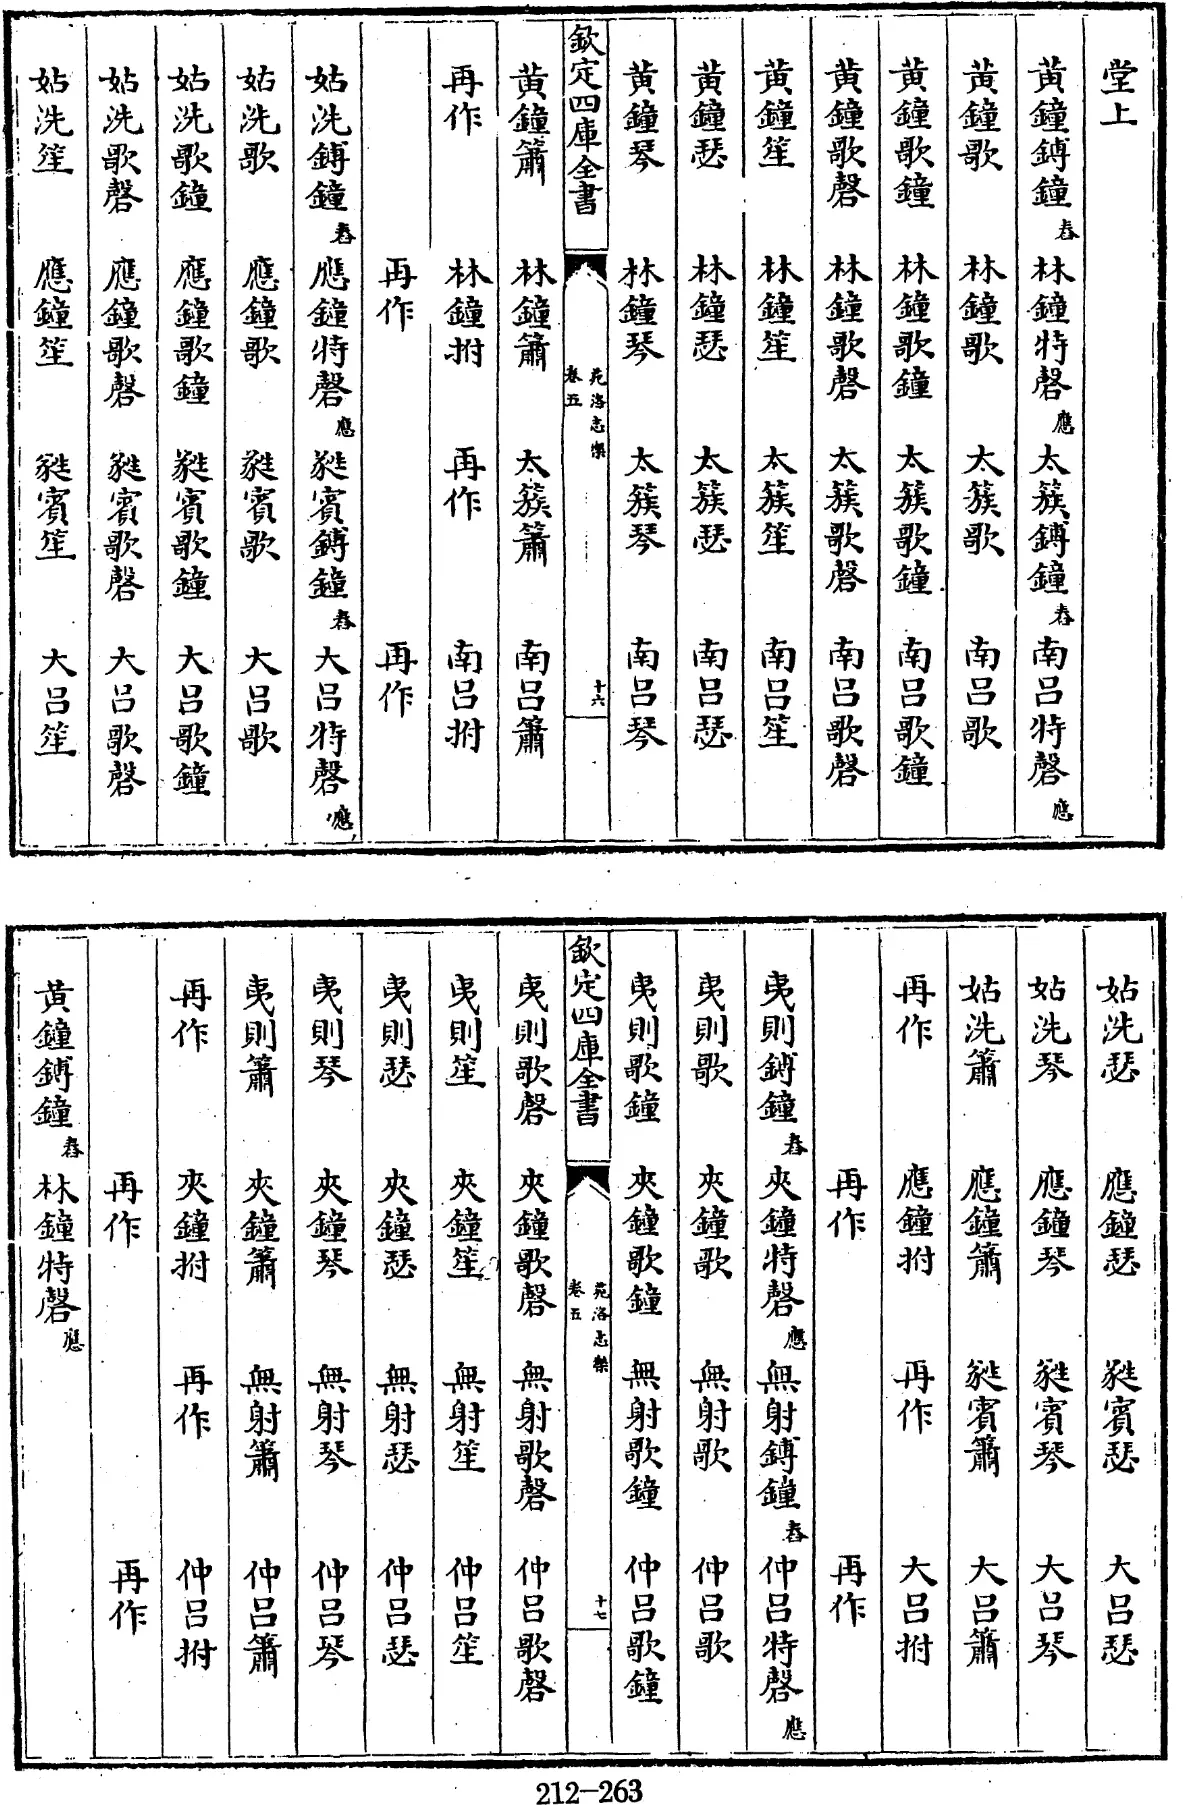 堂上
黃鐘鎛鐘舂 林鐘特磬應 太簇鎛鐘舂 南呂特磬應
黃鐘歌 林鐘歌 太簇歌 南呂歌
黃鐘歌鐘 林鐘歌鐘 太簇歌鐘 南呂歌鐘
黃鐘歌磬 林鐘歌磬 太簇歌磬 南呂歌磬
黃鐘笙 林鐘笙 太簇笙 南呂笙
黃鐘瑟 林鐘瑟 太簇瑟 南呂瑟
黃鐘琴 林鐘琴 太簇琴 南呂琴
欽定四庫全書 苑洛志樂 卷五 十六
黃鐘簫 林鐘簫 太簇簫 南呂簫
再作 林鐘拊 再作 南呂拊
再作 再作
姑洗鎛鐘舂 應鐘特磬應 蕤賓鎛鐘舂 大呂特磬應
姑洗歌 應鐘歌 蕤賓歌 大呂歌
姑洗歌鐘 應鐘歌鐘 蕤賓歌鐘 大呂歌鐘
姑洗歌磬 應鐘歌磬 蕤賓歌磬 大呂歌磬
姑洗笙 應鐘笙 蕤賓笙 大呂笙
姑洗瑟 應鐘瑟 蕤賓瑟 大呂瑟
姑洗琴 應鐘琴 蕤賓琴 大呂琴
姑洗簫 應鐘簫 蕤賓簫 大呂簫
再作 應鐘拊 再作 大呂拊
再作 再作
夷則鎛鐘舂 夾鐘特磬應 無射鎛鐘舂 仲呂特磬應
夷則歌 夾鐘歌 無射歌 仲呂歌
夷則歌鐘 夾鐘歌鐘 無射歌鐘 仲呂歌鐘
欽定四庫全書 苑洛志樂 卷五 十七
夷則歌磬 夾鐘歌磬 無射歌磬 仲呂歌磬
夷則笙 夾鐘笙 無射笙 仲呂笙
夷則瑟 夾鐘瑟 無射瑟 仲呂瑟
夷則琴 夾鐘琴 無射琴 仲呂琴
夷則簫 夾鐘簫 無射簫 仲呂簫
再作 夾鐘拊 再作 仲呂拊
再作 再作
黃鐘鎛鐘舂 林鐘特磬應
212-263